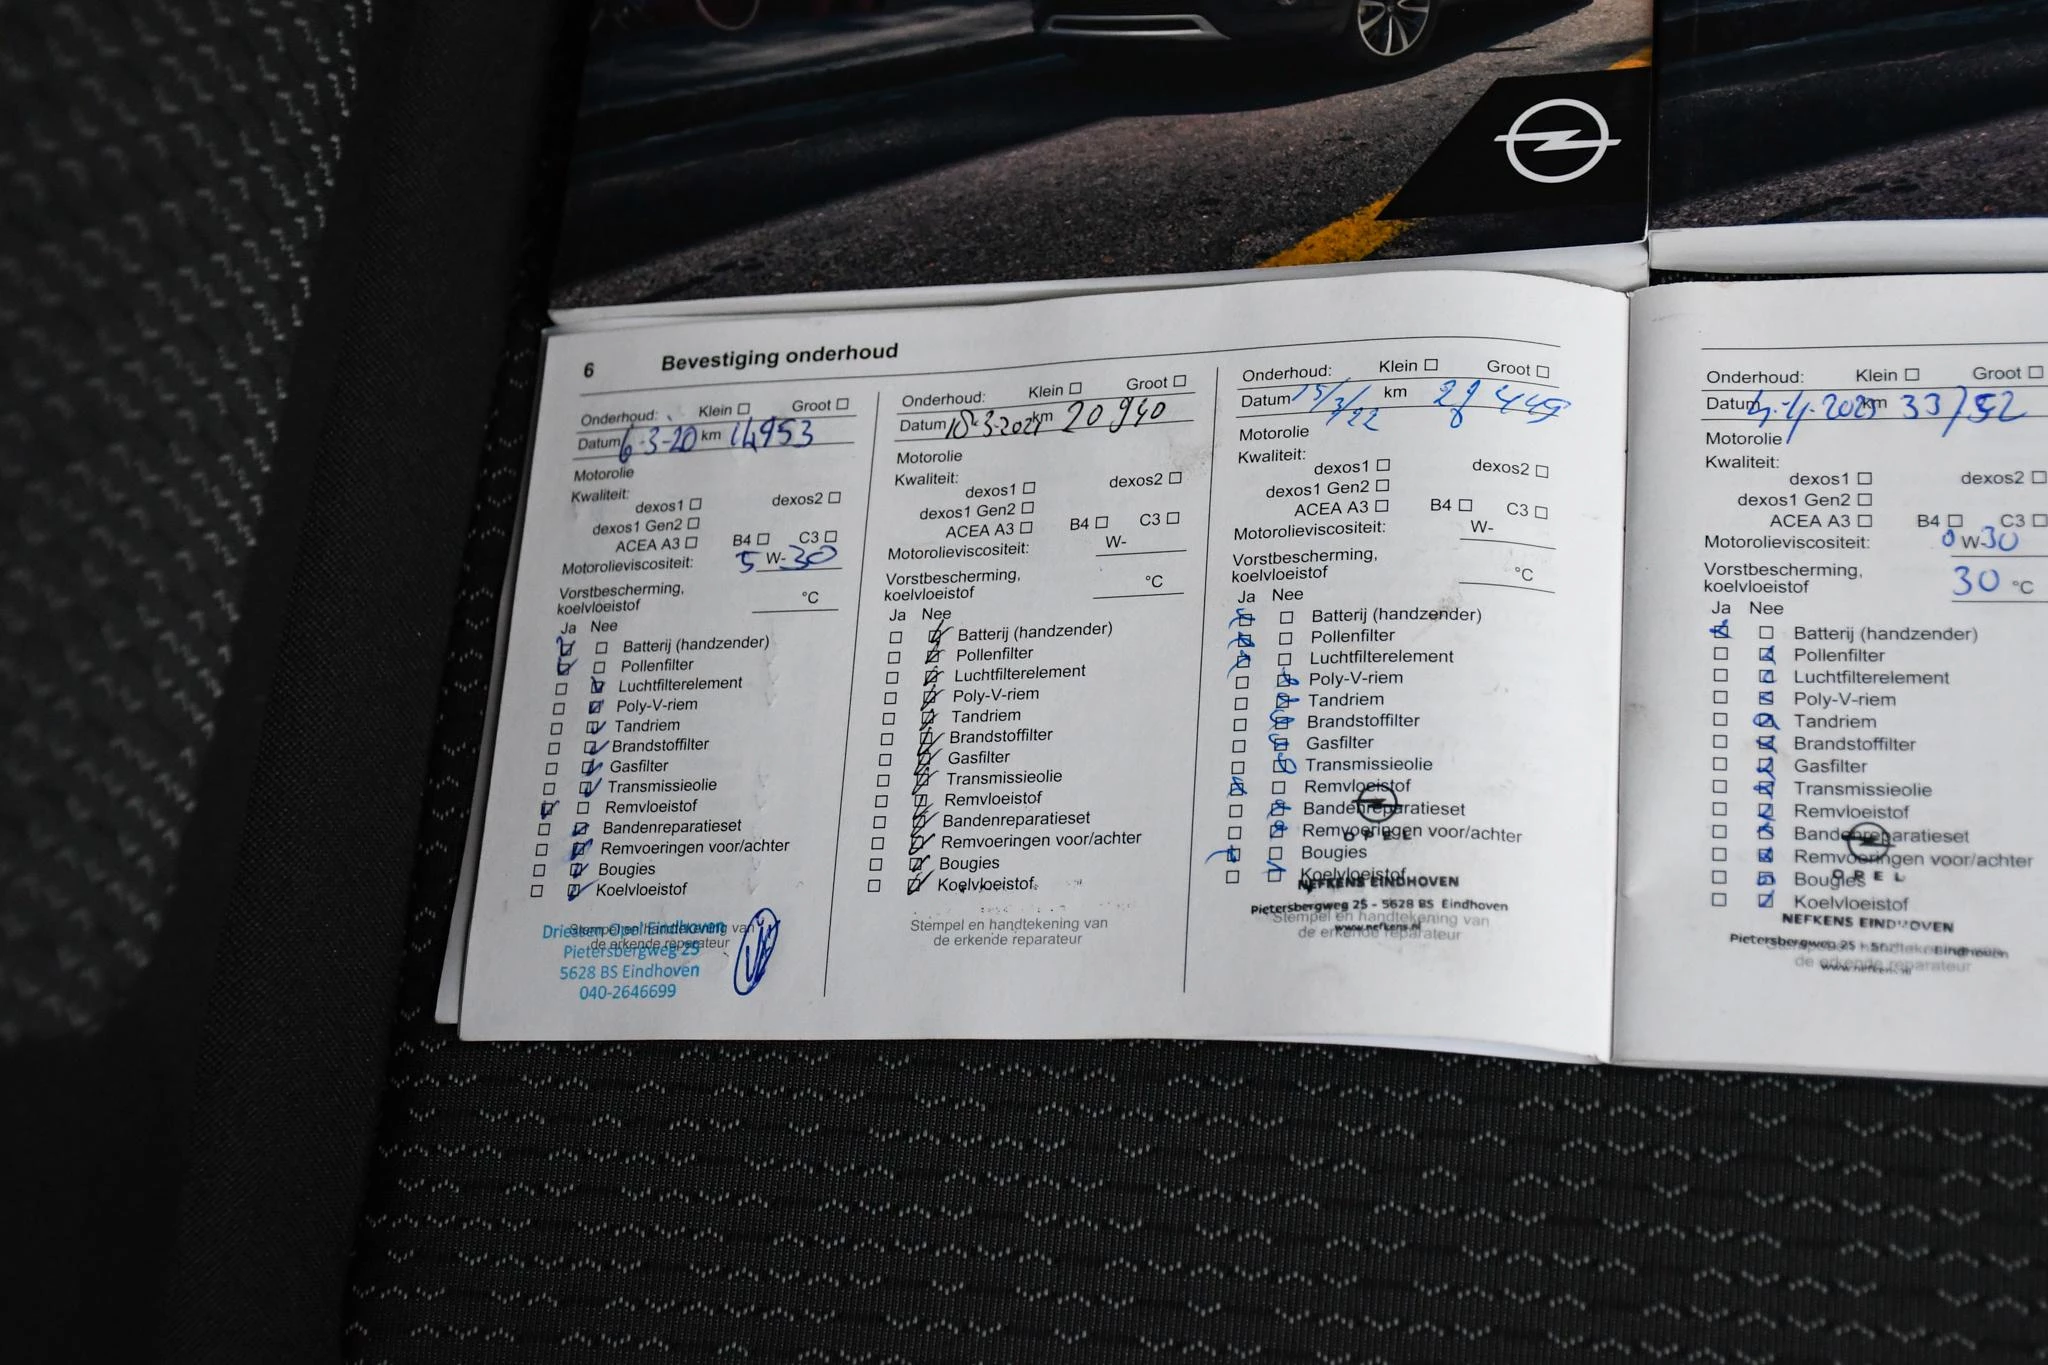 6 Bevestiging onderhoud
Onderhoud: Klein ☐ Groot ☐
Datum 6-3-20 km 14953
Motorolie
Kwaliteit:
dexos1 ☐ dexos2 ☐
dexos1 Gen2 ☐
ACEA A3 ☐ B4 ☐ C3 ☐
Motorolieviscositeit: 5 W-30
Vorstbescherming,
koelvloeistof °C
Ja Nee
Batterij (handzender)
Pollenfilter
Luchtfilterelement
Poly-V-riem
Tandriem
Brandstoffilter
Gasfilter
Transmissieolie
Remvloeistof
Bandenreparatieset
Remvoeringen voor/achter
Bougies
Koelvloeistof
Stempel en handtekening van
de erkende reparateur
Driessen Opel Eindhoven
Pietersbergweg 25
5628 BS Eindhoven
040-2646699
Onderhoud: Klein ☐ Groot ☐
Datum 18-3-2021 km 20940
Motorolie
Kwaliteit:
dexos1 ☐ dexos2 ☐
dexos1 Gen2 ☐
ACEA A3 ☐ B4 ☐ C3 ☐
Motorolieviscositeit: W-
Vorstbescherming,
koelvloeistof °C
Ja Nee
Batterij (handzender)
Pollenfilter
Luchtfilterelement
Poly-V-riem
Tandriem
Brandstoffilter
Gasfilter
Transmissieolie
Remvloeistof
Bandenreparatieset
Remvoeringen voor/achter
Bougies
Koelvloeistof
Stempel en handtekening van
de erkende reparateur
Onderhoud: Klein ☐ Groot ☐
Datum 15/3/22 km
Motorolie
Kwaliteit:
dexos1 ☐ dexos2 ☐
dexos1 Gen2 ☐
ACEA A3 ☐ B4 ☐ C3 ☐
Motorolieviscositeit: W-
Vorstbescherming,
koelvloeistof °C
Ja Nee
Batterij (handzender)
Pollenfilter
Luchtfilterelement
Poly-V-riem
Tandriem
Brandstoffilter
Gasfilter
Transmissieolie
Remvloeistof
Bandenreparatieset
Remvoeringen voor/achter
Bougies
Koelvloeistof
OPEL
NEFKENS EINDHOVEN
Pietersbergweg 25 - 5628 BS Eindhoven
www.nefkens.nl
Stempel en handtekening van
de erkende reparateur
Onderhoud: Klein ☐ Groot ☐
Datum km 33752
Motorolie
Kwaliteit:
dexos1 ☐ dexos2 ☐
dexos1 Gen2 ☐
ACEA A3 ☐ B4 ☐ C3 ☐
Motorolieviscositeit: 0 W-30
Vorstbescherming,
koelvloeistof 30 °C
Ja Nee
Batterij (handzender)
Pollenfilter
Luchtfilterelement
Poly-V-riem
Tandriem
Brandstoffilter
Gasfilter
Transmissieolie
Remvloeistof
Bandenreparatieset
Remvoeringen voor/achter
Bougies
Koelvloeistof
OPEL
NEFKENS EINDHOVEN
Pietersbergweg 25 - Eindhoven
de erkende reparateur
www.nefkens.nl